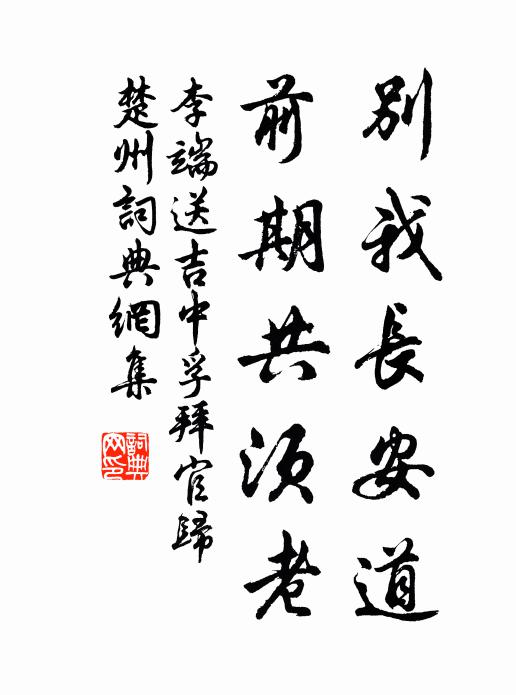 別我長安道
前期共須老
李端送吉中孚拜官歸
楚州詞典網集
詞典網印